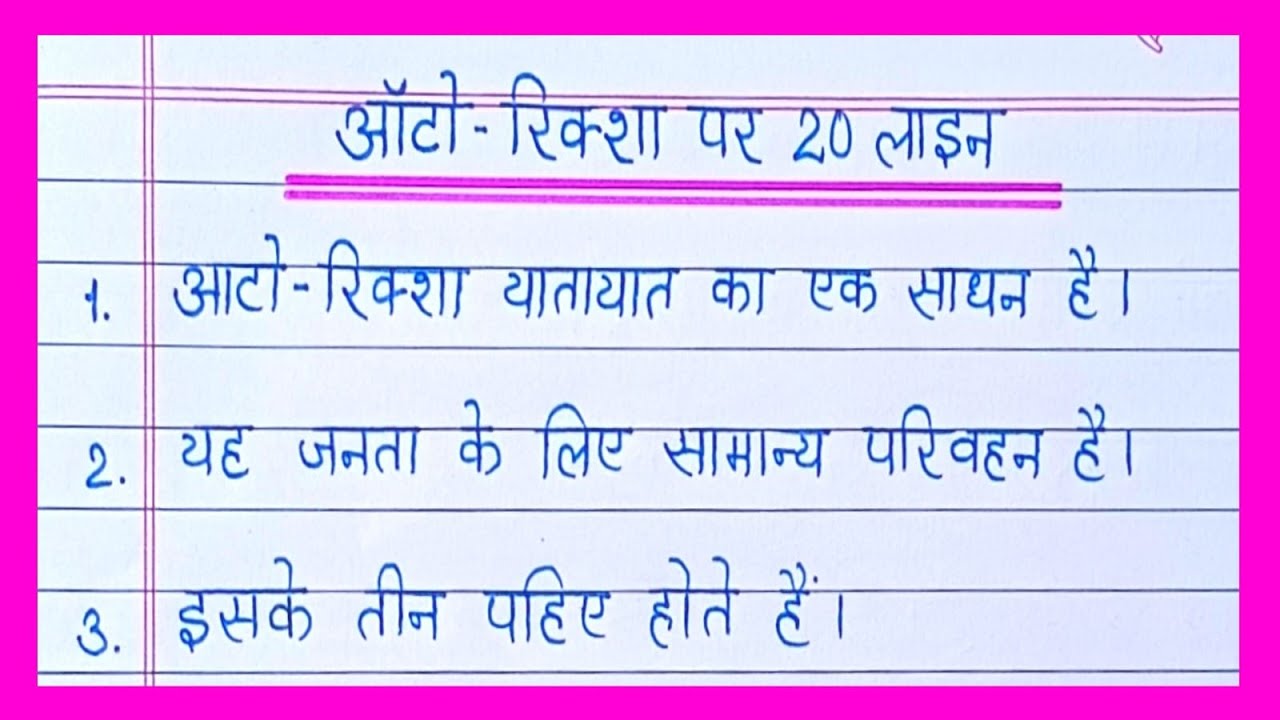 ऑटो-रिक्शा पर 20 लाइन
1. आटो-रिक्शा यातायात का एक साधन है।
2. यह जनता के लिए सामान्य परिवहन है।
3. इसके तीन पहिए होते हैं।